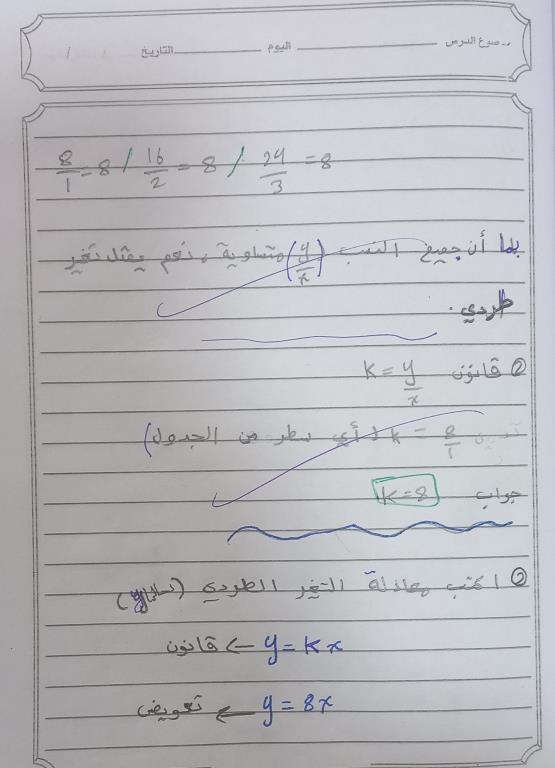 موضوع الدرس اليوم التاريخ / /
8/1 = 8 / 16/2 = 8 / 24/3 = 8
بما أن جميع النسب (y/x) متساوية، نعم يمثل تغير
طردي.
② قانون k = y/x
k = 8/1 (أي سطر من الجدول)
جواب k = 8
② اكتب معادلة التغير الطردي
y = kx ← قانون
y = 8x ← تعويض